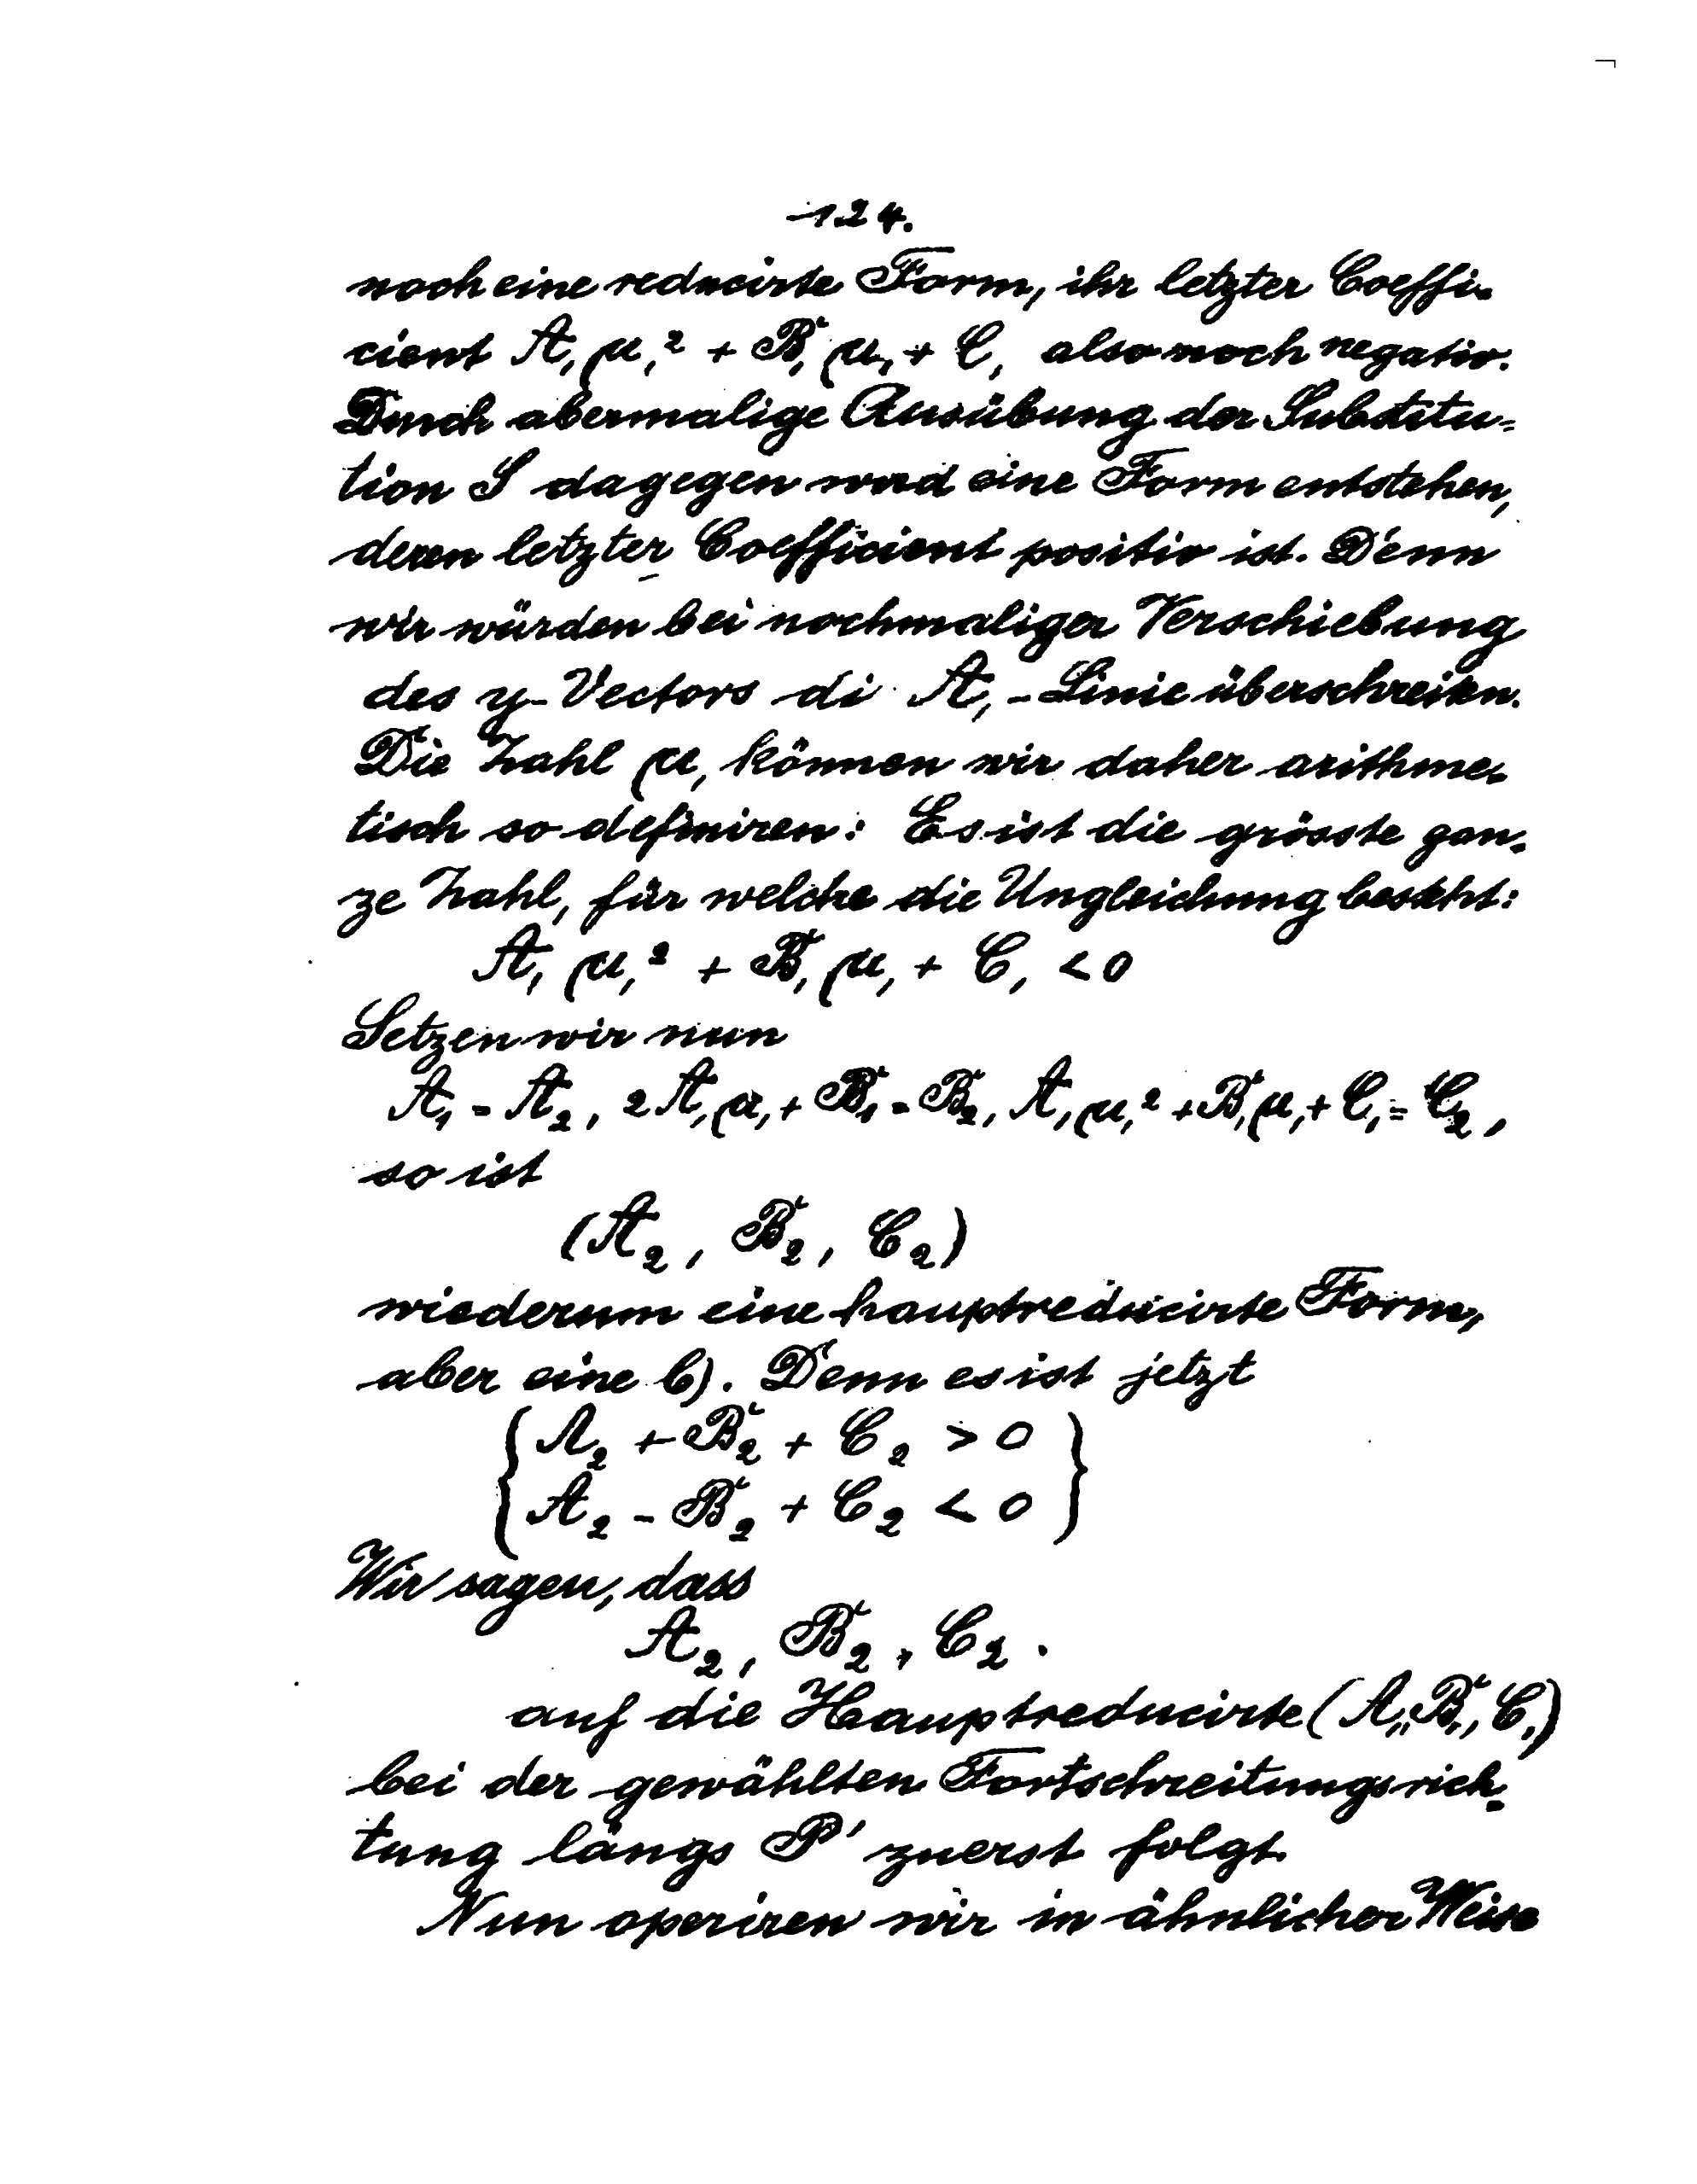 124.
noch eine reducirte Form, ihr letzter Coeffi-
cient A₁μ₁² + B₁μ₁ + C₁ also noch negativ.
Durch abermalige Ausübung der Substitu-
tion S dagegen wird eine Form entstehen,
deren letzter Coefficient positiv ist. Denn
wir würden bei nochmaliger Verschiebung
des y-Vectors di A₁-Linie überschreiten.
Die Zahl μ₁ können wir daher arithme-
tisch so definiren: Es ist die grösste gan-
ze Zahl, für welche die Ungleichung besteht:
A₁μ₁² + B₁μ₁ + C₁ < 0
Setzen wir nun
A₁ = A₂, 2A₁μ₁ + B₁ = B₂, A₁μ₁² + B₁μ₁ + C₁ = C₂,
so ist
(A₂, B₂, C₂)
wiederum eine hauptreducirte Form,
aber eine b). Denn es ist jetzt
{ A₂ + B₂ + C₂ > 0 }
{ A₂ - B₂ + C₂ < 0 }
Wir sagen, dass
A₂, B₂, C₂.
auf die Hauptreducirte (A₁, B₁, C₁)
bei der gewählten Fortschreitungsrich-
tung längs P' zuerst folgt.
Nun operiren wir in ähnlicher Weise